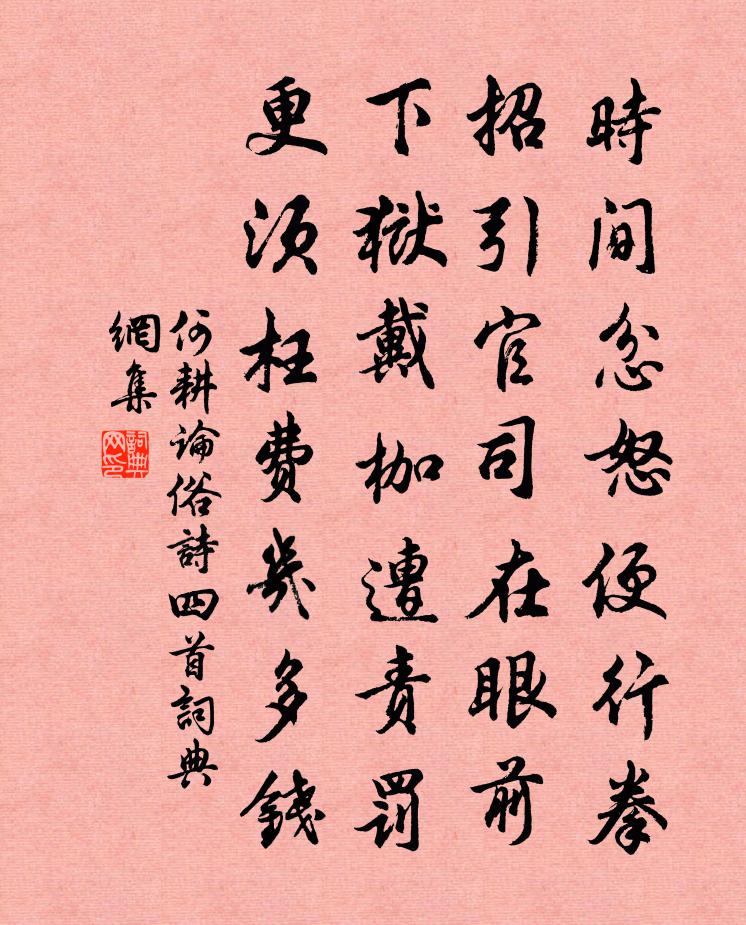 時間忿怒便行拳
招引官司在眼前
下獄戴枷遭責罰
更須枉費幾多錢
何耕論俗詩四首詞典
網集
詞典网印